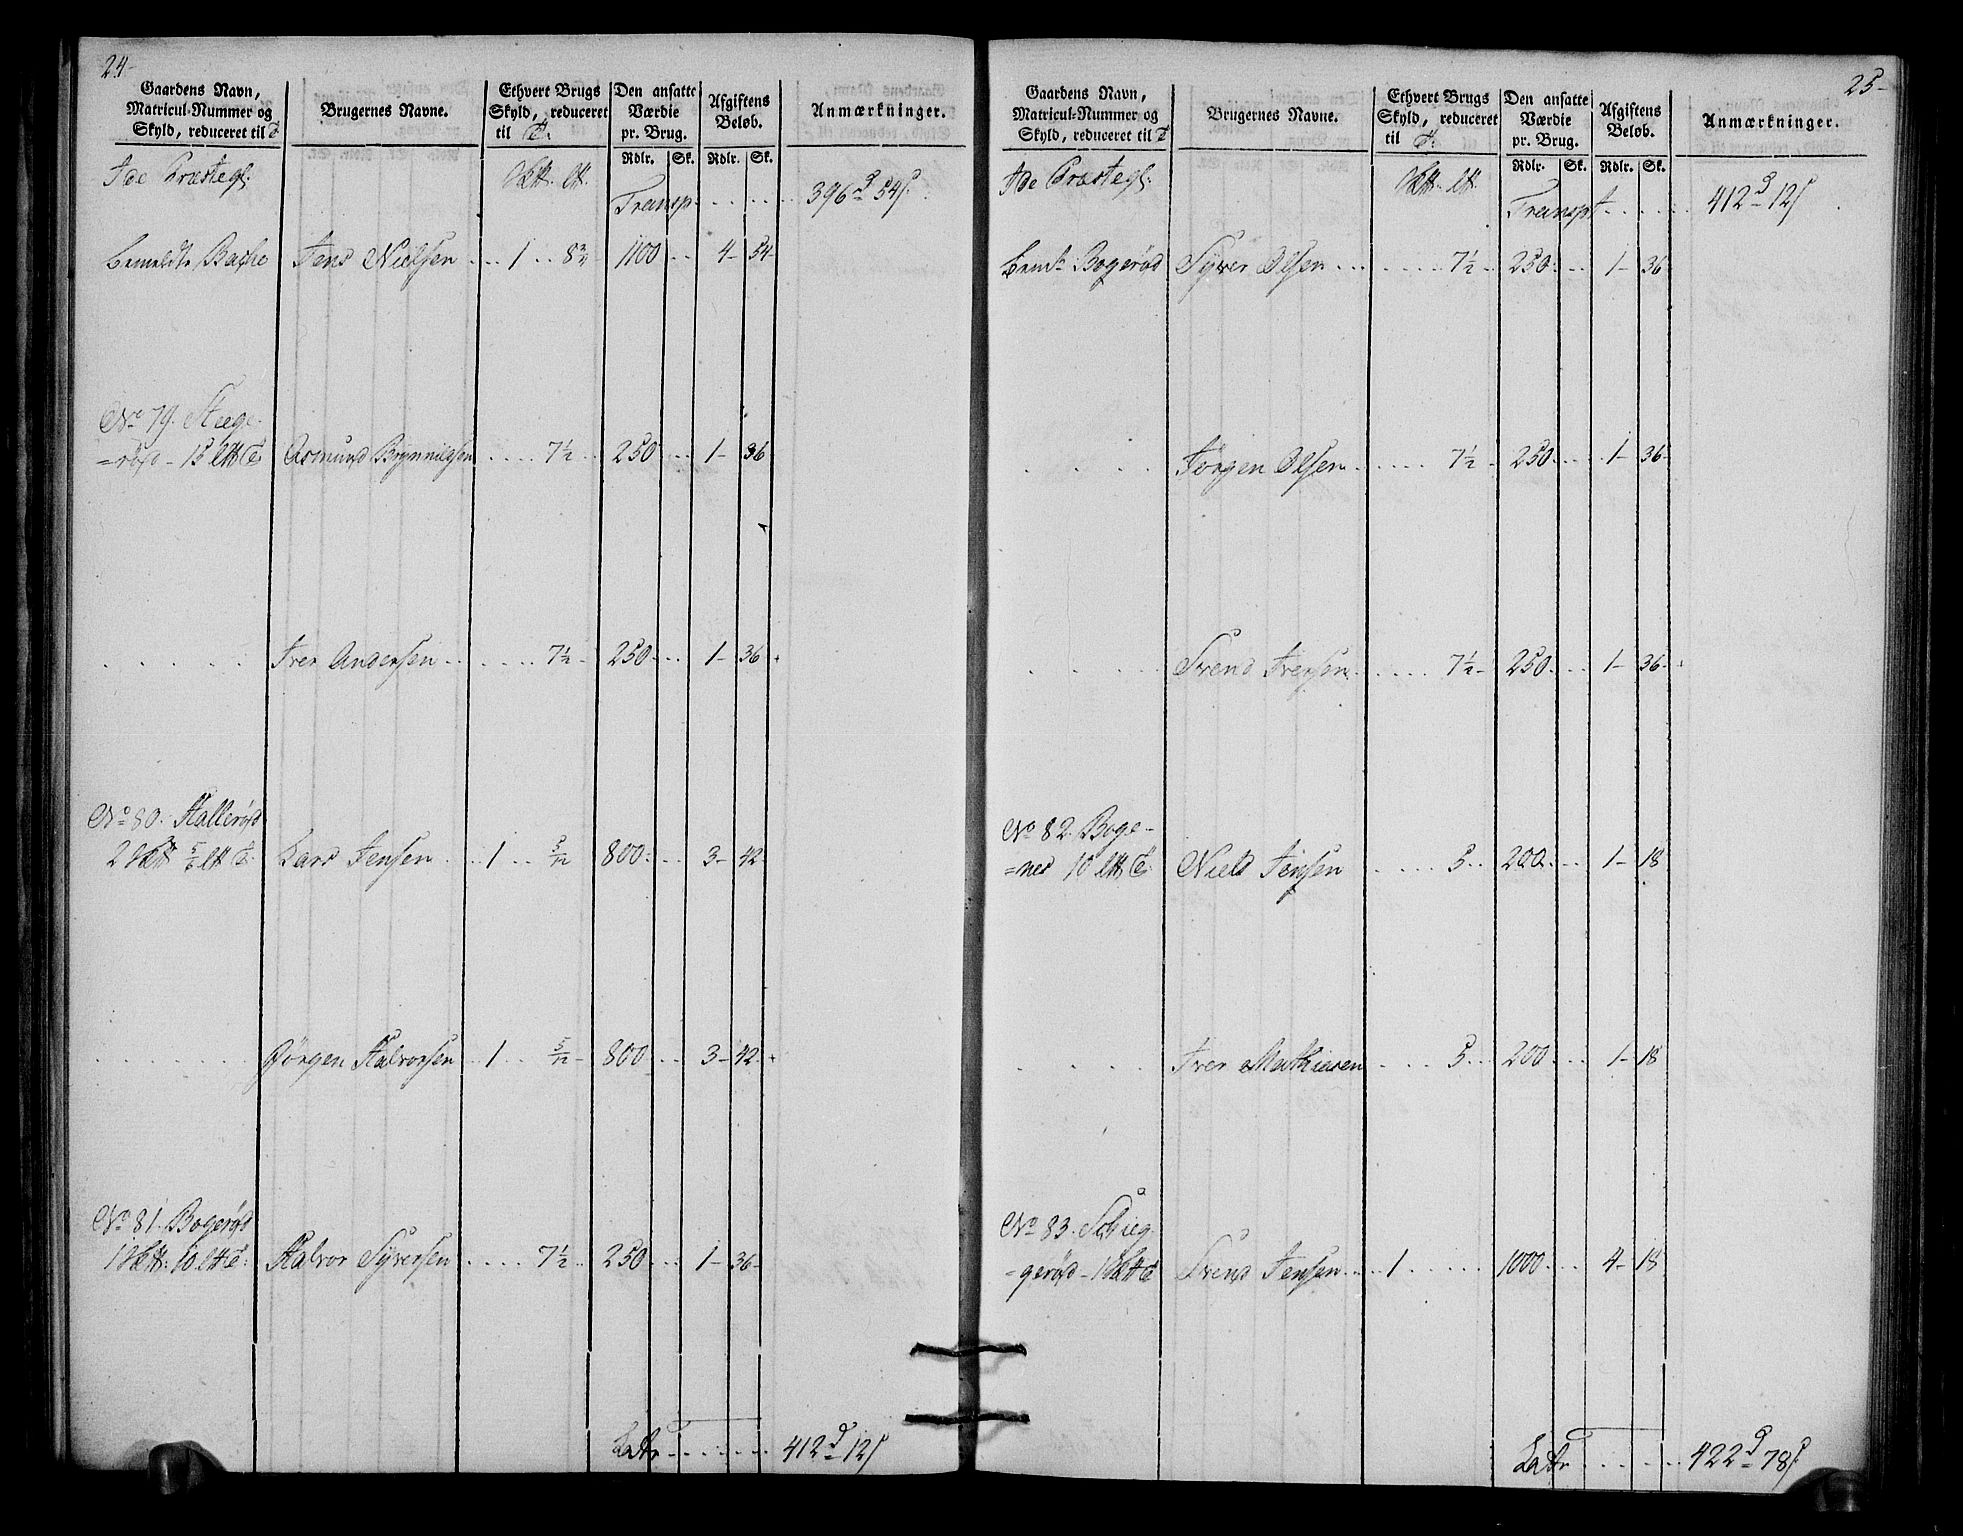 24-
Gaardens Navn, Matricul-Nummer og Skyld, reduceret til T
Brugernes Navne.
Ethvert Brugs Skyld, reduceret til T.
Den ansatte Værdie pr. Brug.
Afgiftens Beløb.
Anmærkninger.
Rdlr. Sk. Rdlr. Sk.
Ide Præstegl:
Transp. 396 54
Jens Nielsen 1 1100 4 54
No 79. Stege
=rød 15 T Asmund Brynnilsen 7½ 250 1 36
Iver Andersen 7½ 250 1 36
No 80. Hallerød
2 5/6 T Lars Jensen 1 5/12 800 3 42
Jørgen Halvorsen 1 5/12 800 3 42
No 81. Bogerød
1 10 T Halvor Syversen 7½ 250 1 36
Latr 412 12
25-
Gaardens Navn, Matricul-Nummer og Skyld, reduceret til T
Brugernes Navne.
Ethvert Brugs Skyld, reduceret til T.
Den ansatte Værdie pr. Brug.
Afgiftens Beløb.
Anmærkninger.
Rdlr. Sk. Rdlr. Sk.
Ide Præstegl:
Transpt 412 12
Bogerød Syver Olsen 7½ 250 1 36
Jørgen Olsen 7½ 250 1 36
Svend Iversen 7½ 250 1 36
No 82. Boge-
=nes 10 T Niels Jensen 5 200 1 18
Iver Mathiesen 5 200 1 18
No 83.
=gerød 1 T Svend Jensen 1 1000 4 18
Latr 422 78